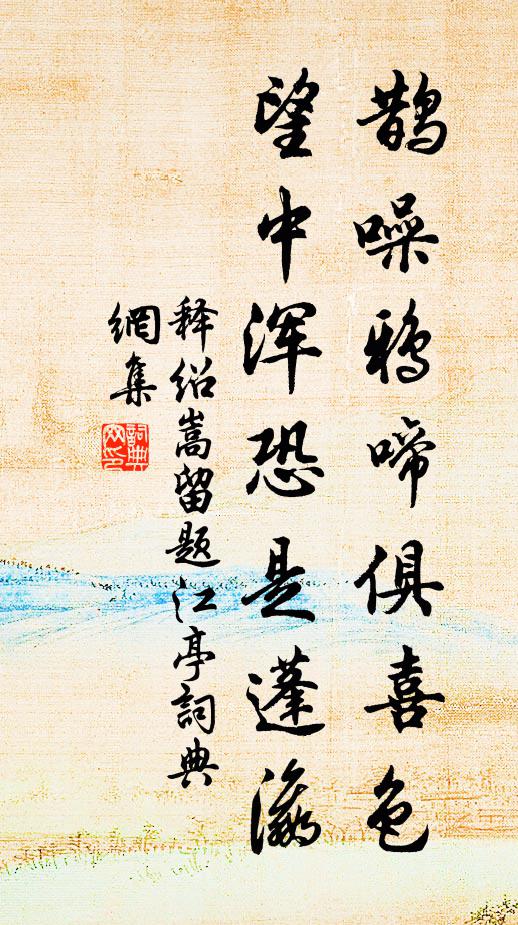 鹊噪鸦啼俱喜色
望中浑恐是蓬瀛
释绍嵩留题江亭詞典
網集
詞典
网印